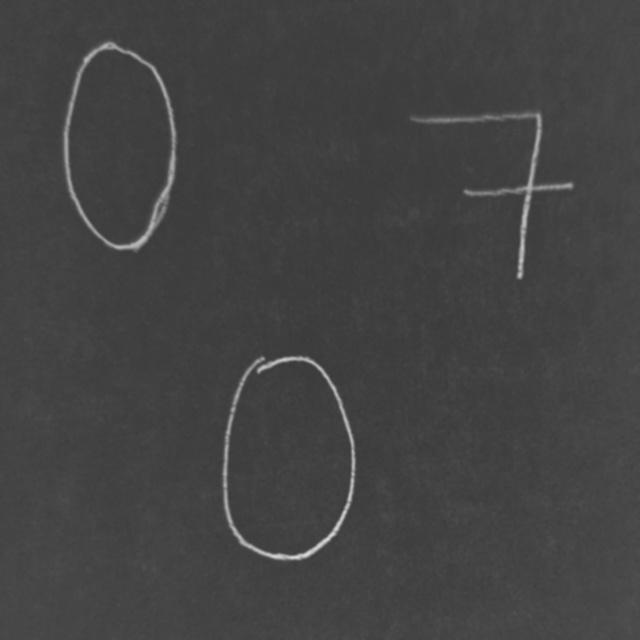 0 7
0